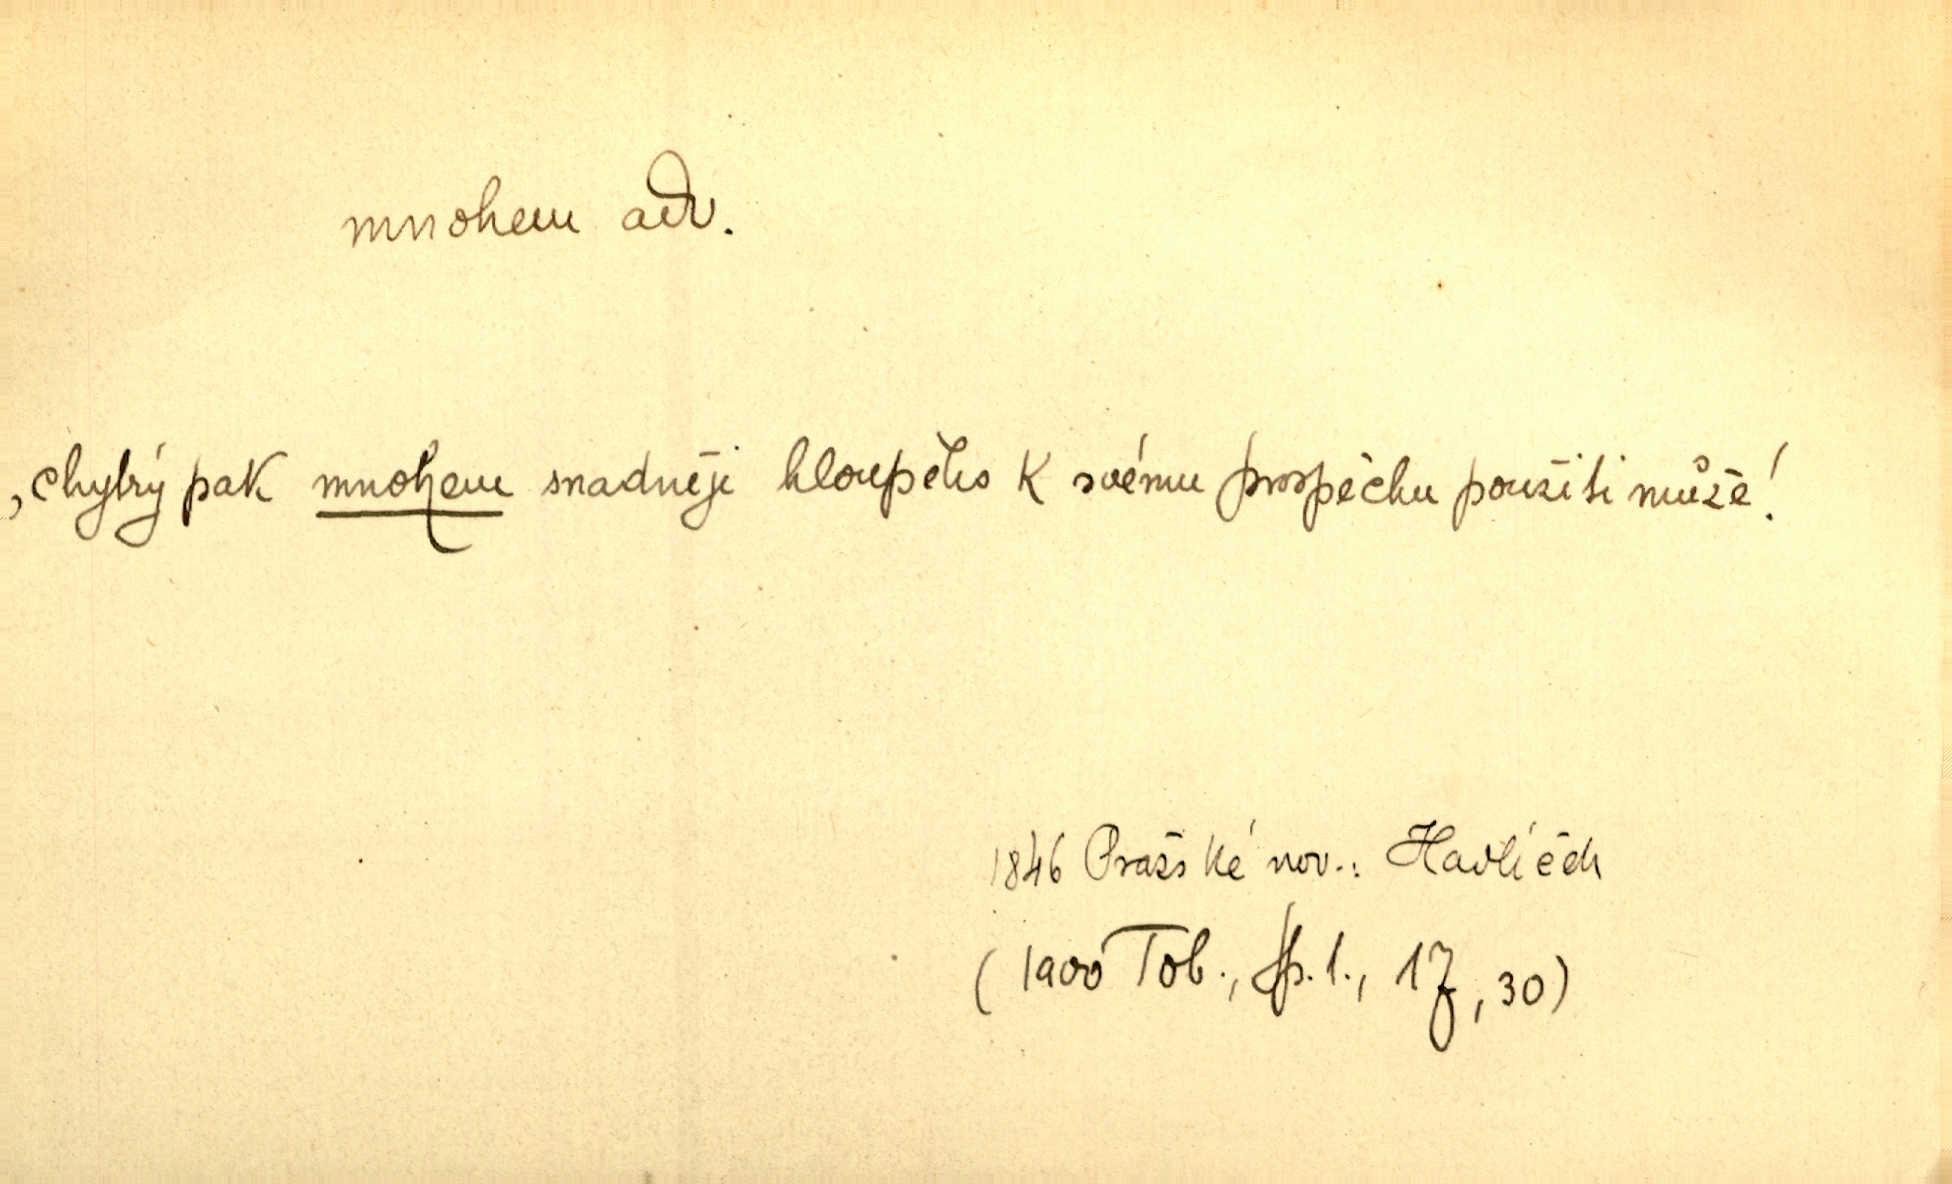 mnohem adv.
, chytrý pak mnohem snadněji hloupého k svému prospěchu použiti může!
1846 Pražské nov.: Havlíček
(1900 Tob., Sp. 1., 17, 30)